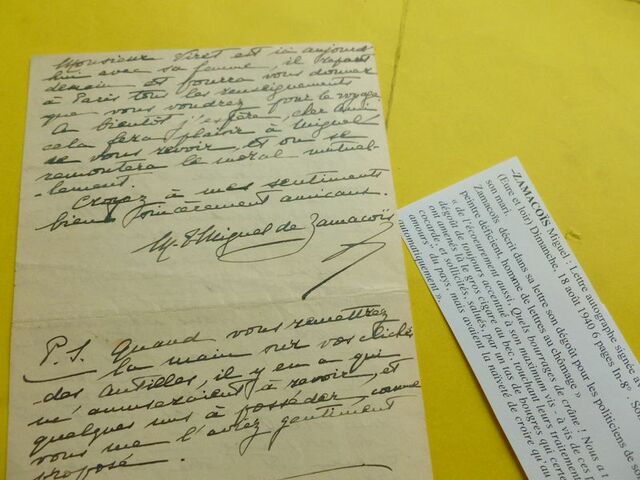 Monsieur Viret est ici aujourd'
hui avec sa femme, il repart
demain et pourra vous donner
à Paris tous les renseignements
que vous voudrez pour le voyage.
A bientôt j'espère, cher ami
cela fera plaisir à Miguel
de vous revoir, et on se
remontera le moral mutuel-
lement.
Croyez à mes sentiments
bien sincèrement amicaux.
M. Miguel de Zamacoïs
P.S. Quand vous remettrez
la main sur vos clichés
des Antilles, il y en a qui
m'amuseraient à revoir, et
quelques uns à posséder, comme
vous me l'aviez gentiment
proposé.
-ZAMACOÏS Miguel : Lettre autographe signée
(Eure et loir) Dimanche, 18 août 1940 6 pages In-8°. S
son mari.
Zamacoïs décrit dans sa lettre son dégoût pour les politiciens de so
peintre déficient, homme de lettres au chômage »
« de l'écoeurement aussi. Quels bourrages de crâne ! Nous a
dégoût de toujours accentué au maximum vis - à vis de ces p
ont amenés là le gros cigare au bec, touchent leurs traitement
cocarde, et sollicités, salués, par un tas de bougres qui certe
amours" du pays, mais avaient la naïveté de croire qu'au
automatiquement ».